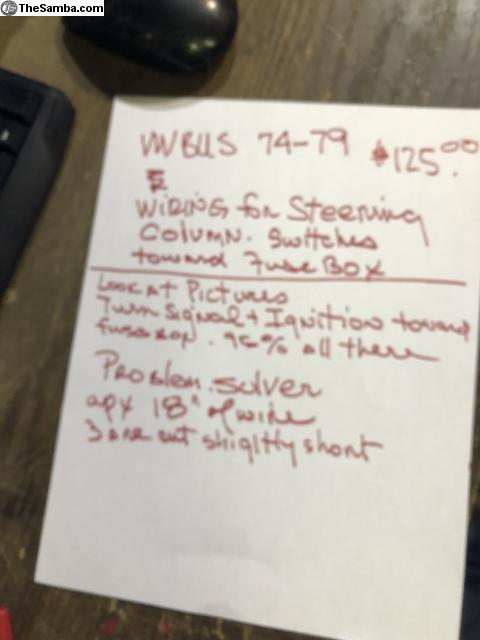 TheSamba.com
VWBUS 74-79 $125.00
WIRING for Steering
COLUMN. Switches
toward Fuse Box
LOOK AT Pictures
Turn Signal + Ignition toward
95% all there
PROblem.solver
apx 18" of wire
3 are cut shigltly short